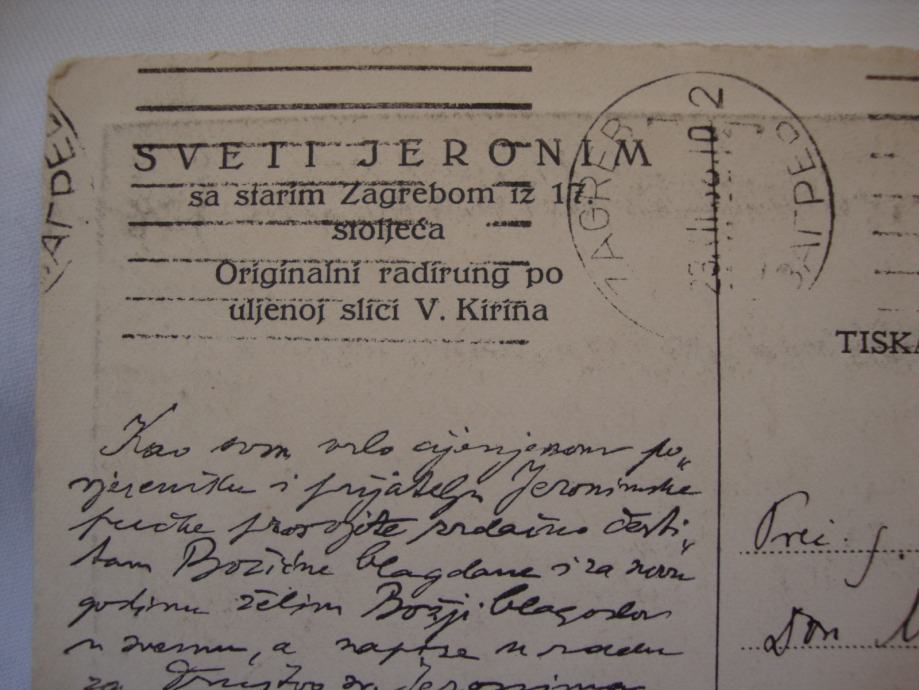 SVETI JERONIM
sa starim Zagrebom iz 17.
stoljeća
Originalni radirung po
uljenoj slici V. Kirina
ZAGREB
ЗАГРЕБ
TISKA
Kao svom vrlo cijenjenom po„
vjereniku i prijatelju Jeronimske
pučke prosvjete srdačno česti„
tam Božićne blagdane i za novu
godinu želim Božji blagoslov
u svemu, a napose u radu
za Društvo sv. Jeronima
Preč. g.
Don